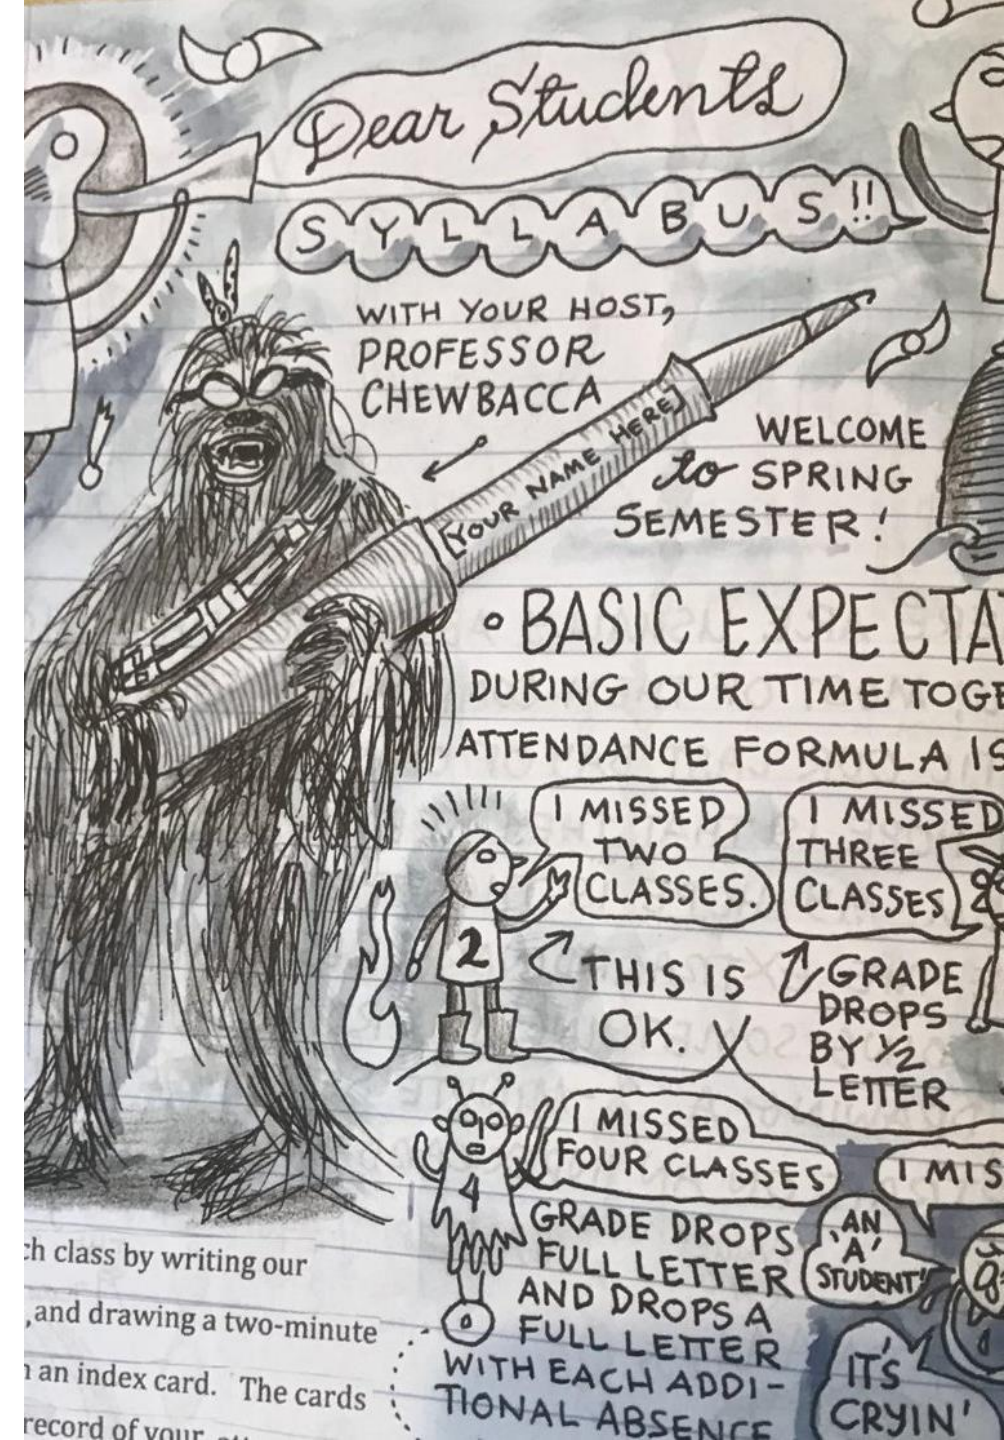 Dear Students
SYLLABUS!!
WITH YOUR HOST,
PROFESSOR
CHEWBACCA
[YOUR NAME HERE]
WELCOME
to SPRING
SEMESTER!
• BASIC EXPECTA
DURING OUR TIME TOGE
ATTENDANCE FORMULA IS
I MISSED
TWO
CLASSES.
I MISSED
THREE
CLASSES
2
THIS IS
OK.
GRADE
DROPS
BY ½
LETTER
I MISSED
FOUR CLASSES
4
I MIS
GRADE DROPS
FULL LETTER
AND DROPS A
FULL LETTER
WITH EACH ADDI-
TIONAL ABSENCE
AN
'A'
STUDENT!
IT'S
CRYIN'
ch class by writing our
, and drawing a two-minute
an index card. The cards
record of your